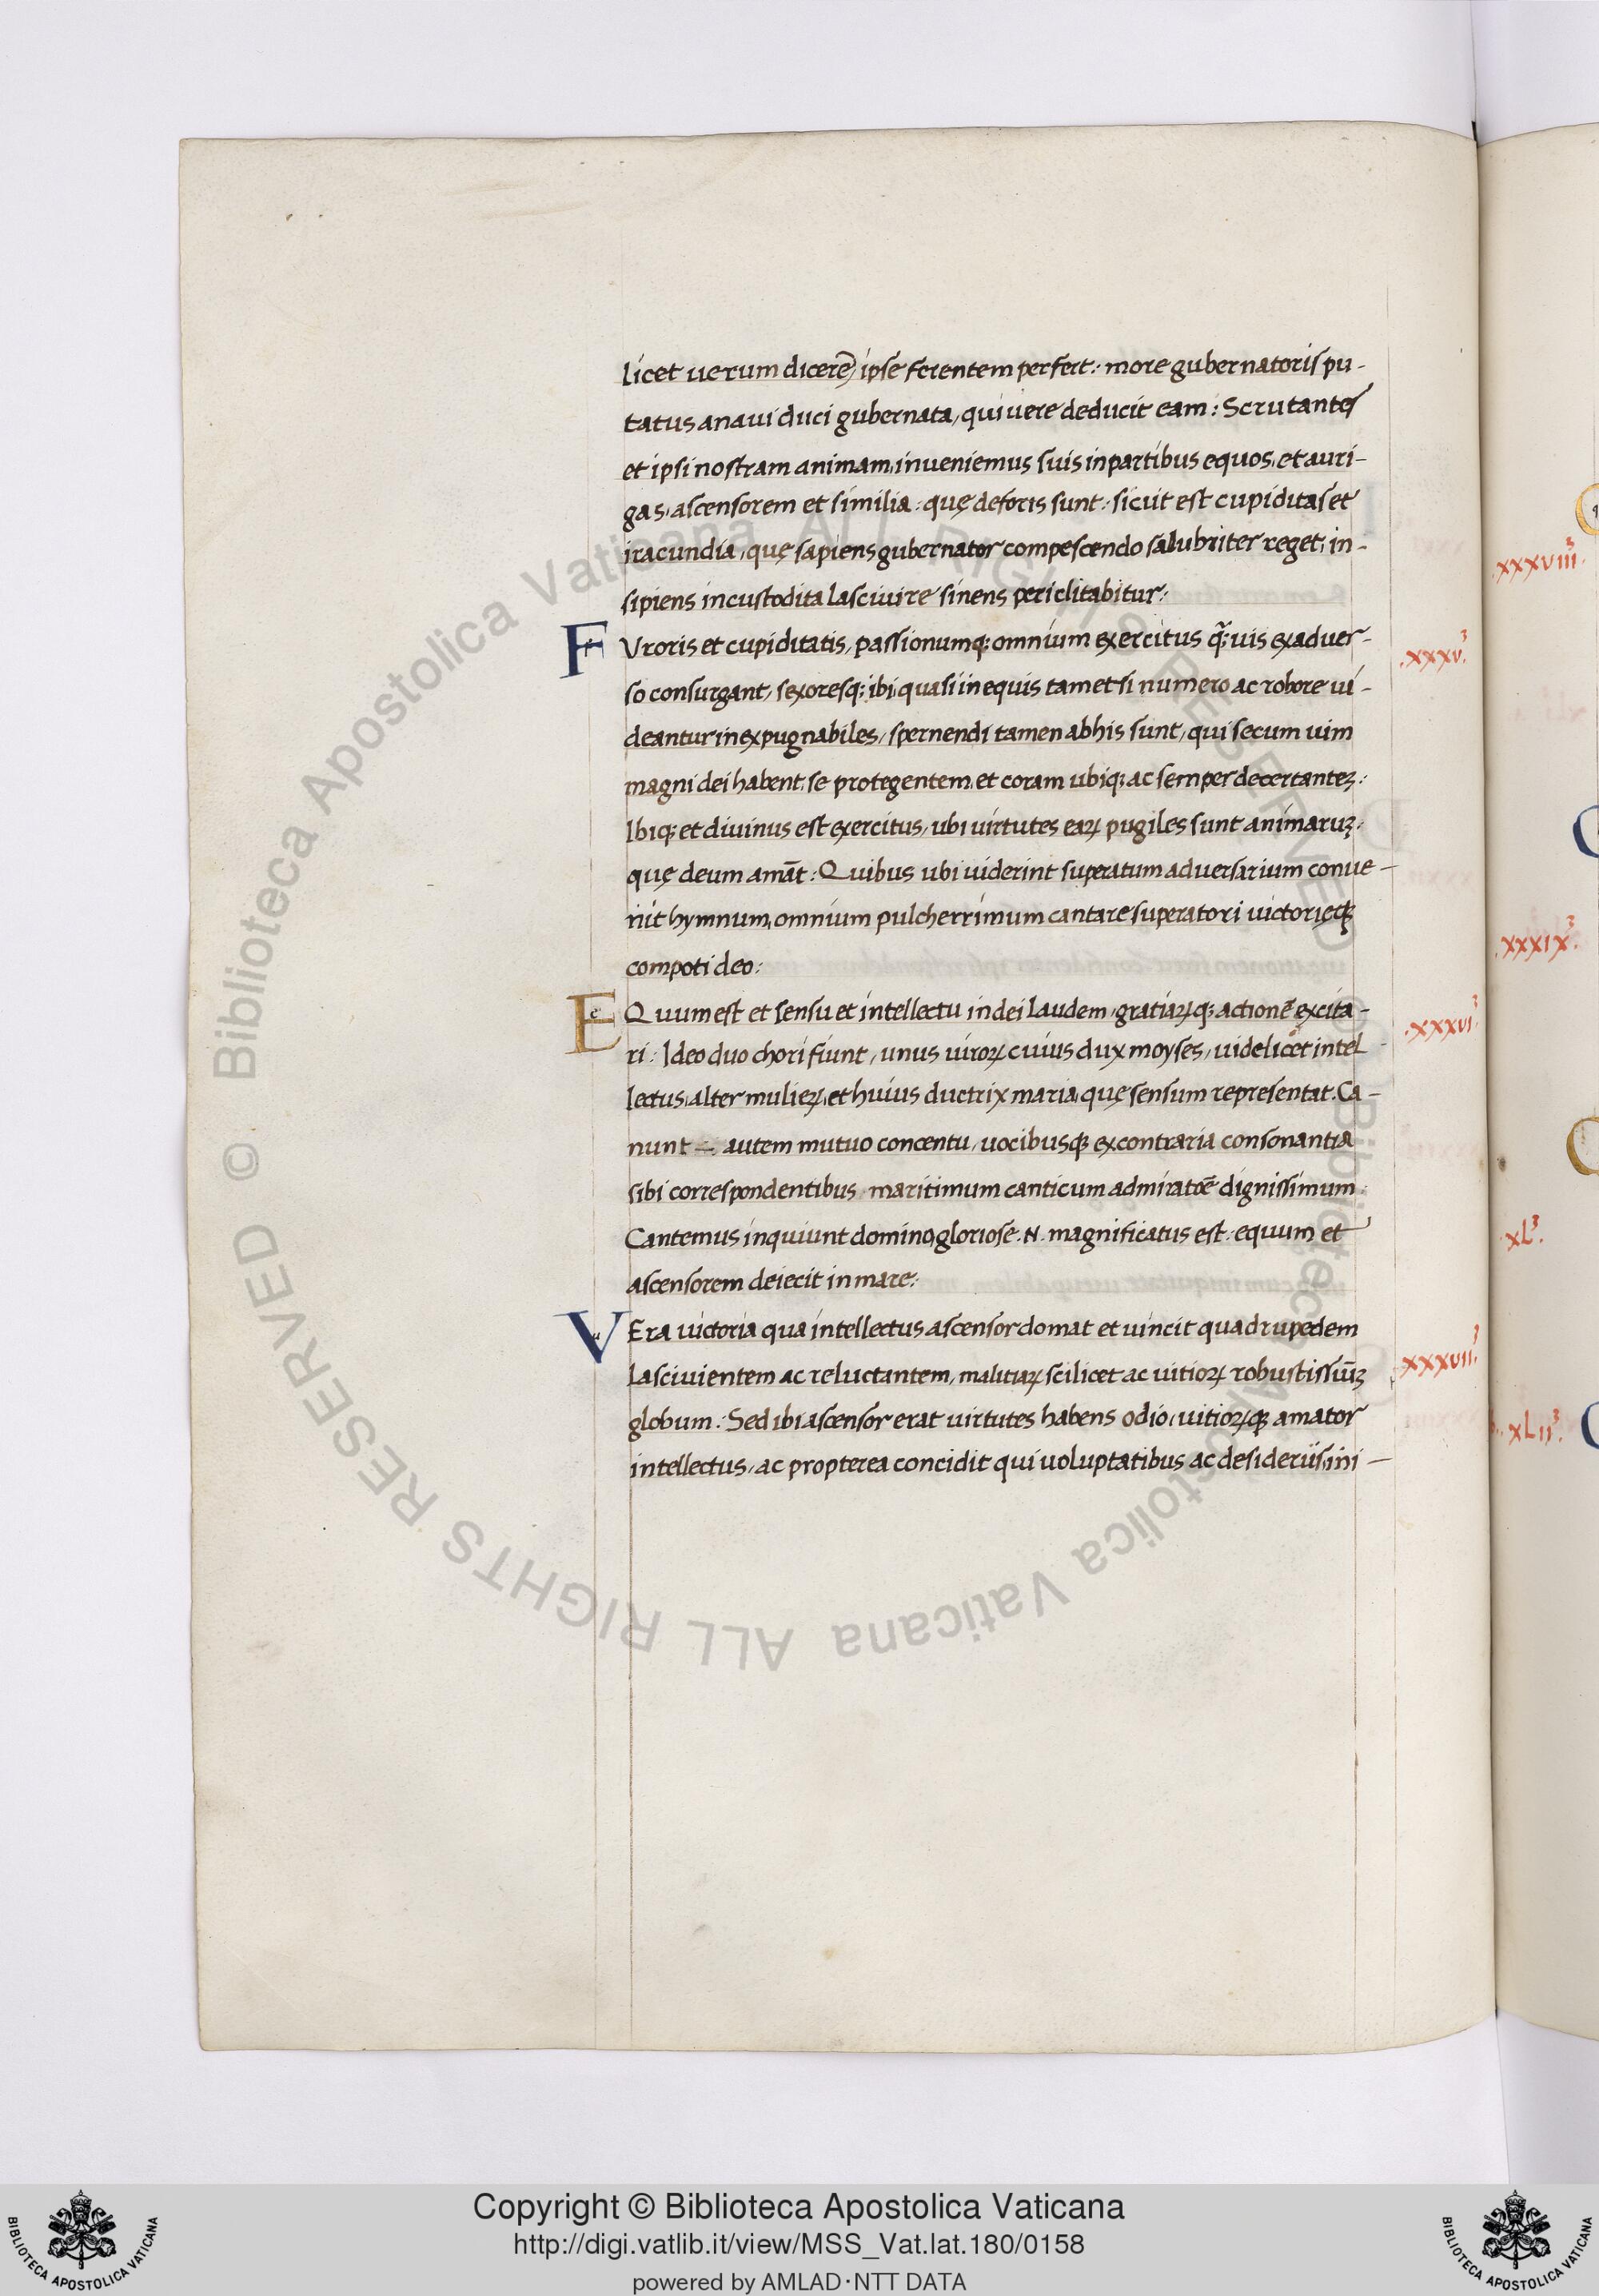 licet uerum dicerē) ipse ferentem perfert: more gubernatoris pu-
tatus a naui duci gubernata, qui uere deducit eam: Scrutantes
et ipsi nostram animam, inueniemus suis in partibus equos, et auri-
gas, ascensorem et similia: quę deforis sunt: sicut est cupiditas et
iracundia, quę sapiens gubernator compescendo salubriter reget, in-
sipiens incustodita lasciuire sinens periclitabitur:
FVroris et cupiditatis, passionumq; omnium exercitus q̃uis ex aduer-
.xxxv.
so consurgant, sexoresq; ibi, quasi in equis tametsi numero ac robore ui-
deantur inexpugnabiles, spernendi tamen ab his sunt, qui secum uim
magni dei habent, se protegentem, et coram ubiq; ac semper decertanteꝫ:
Ibiq; et diuinus est exercitus, ubi uirtutes eaꝝ pugiles sunt animaruꝫ,
quę deum amāt: Quibus ubi uiderint superatum aduersarium conue-
nit hymnum, omnium pulcherrimum cantare superatori uictorięq;
compoti deo:
EQuum est et sensu et intellectu in dei laudem, gratiaꝝq; actionē excita-
.xxxvi.
ri: Ideo duo chori fiunt, unus uiroꝝ cuius dux moyses, uidelicet intel
lectus, alter mulieꝝ, et huius ductrix maria, quę sensum representat. Ca-
nunt autem mutuo concentu, uocibusq; ex contraria consonantia
sibi correspondentibus maritimum canticum admiratōe dignissimum:
Cantemus inquiunt domino, gloriose .N. magnificatus est: equum et
ascensorem deiecit in mare:
VEra uictoria qua intellectus ascensor domat et uincit quadrupedem
xxxvii.
lasciuientem ac reluctantem, malitiaꝝ scilicet ac uitioꝝ robustissiūꝫ
globum: Sed ibi ascensor erat uirtutes habens odio, uitioꝝq; amator
intellectus, ac propterea concidit qui uoluptatibus ac desideriis, ini-
.xxxviii.
.xxxix.
.xL.
.xLii.
© Biblioteca Apostolica Vaticana ALL RIGHTS RESERVED
© Biblioteca Apostolica Vaticana ALL RIGHTS RESERVED
Copyright © Biblioteca Apostolica Vaticana
http://digi.vatlib.it/view/MSS_Vat.lat.180/0158
powered by AMLAD·NTT DATA
BIBLIOTECA APOSTOLICA VATICANA
BIBLIOTECA APOSTOLICA VATICANA